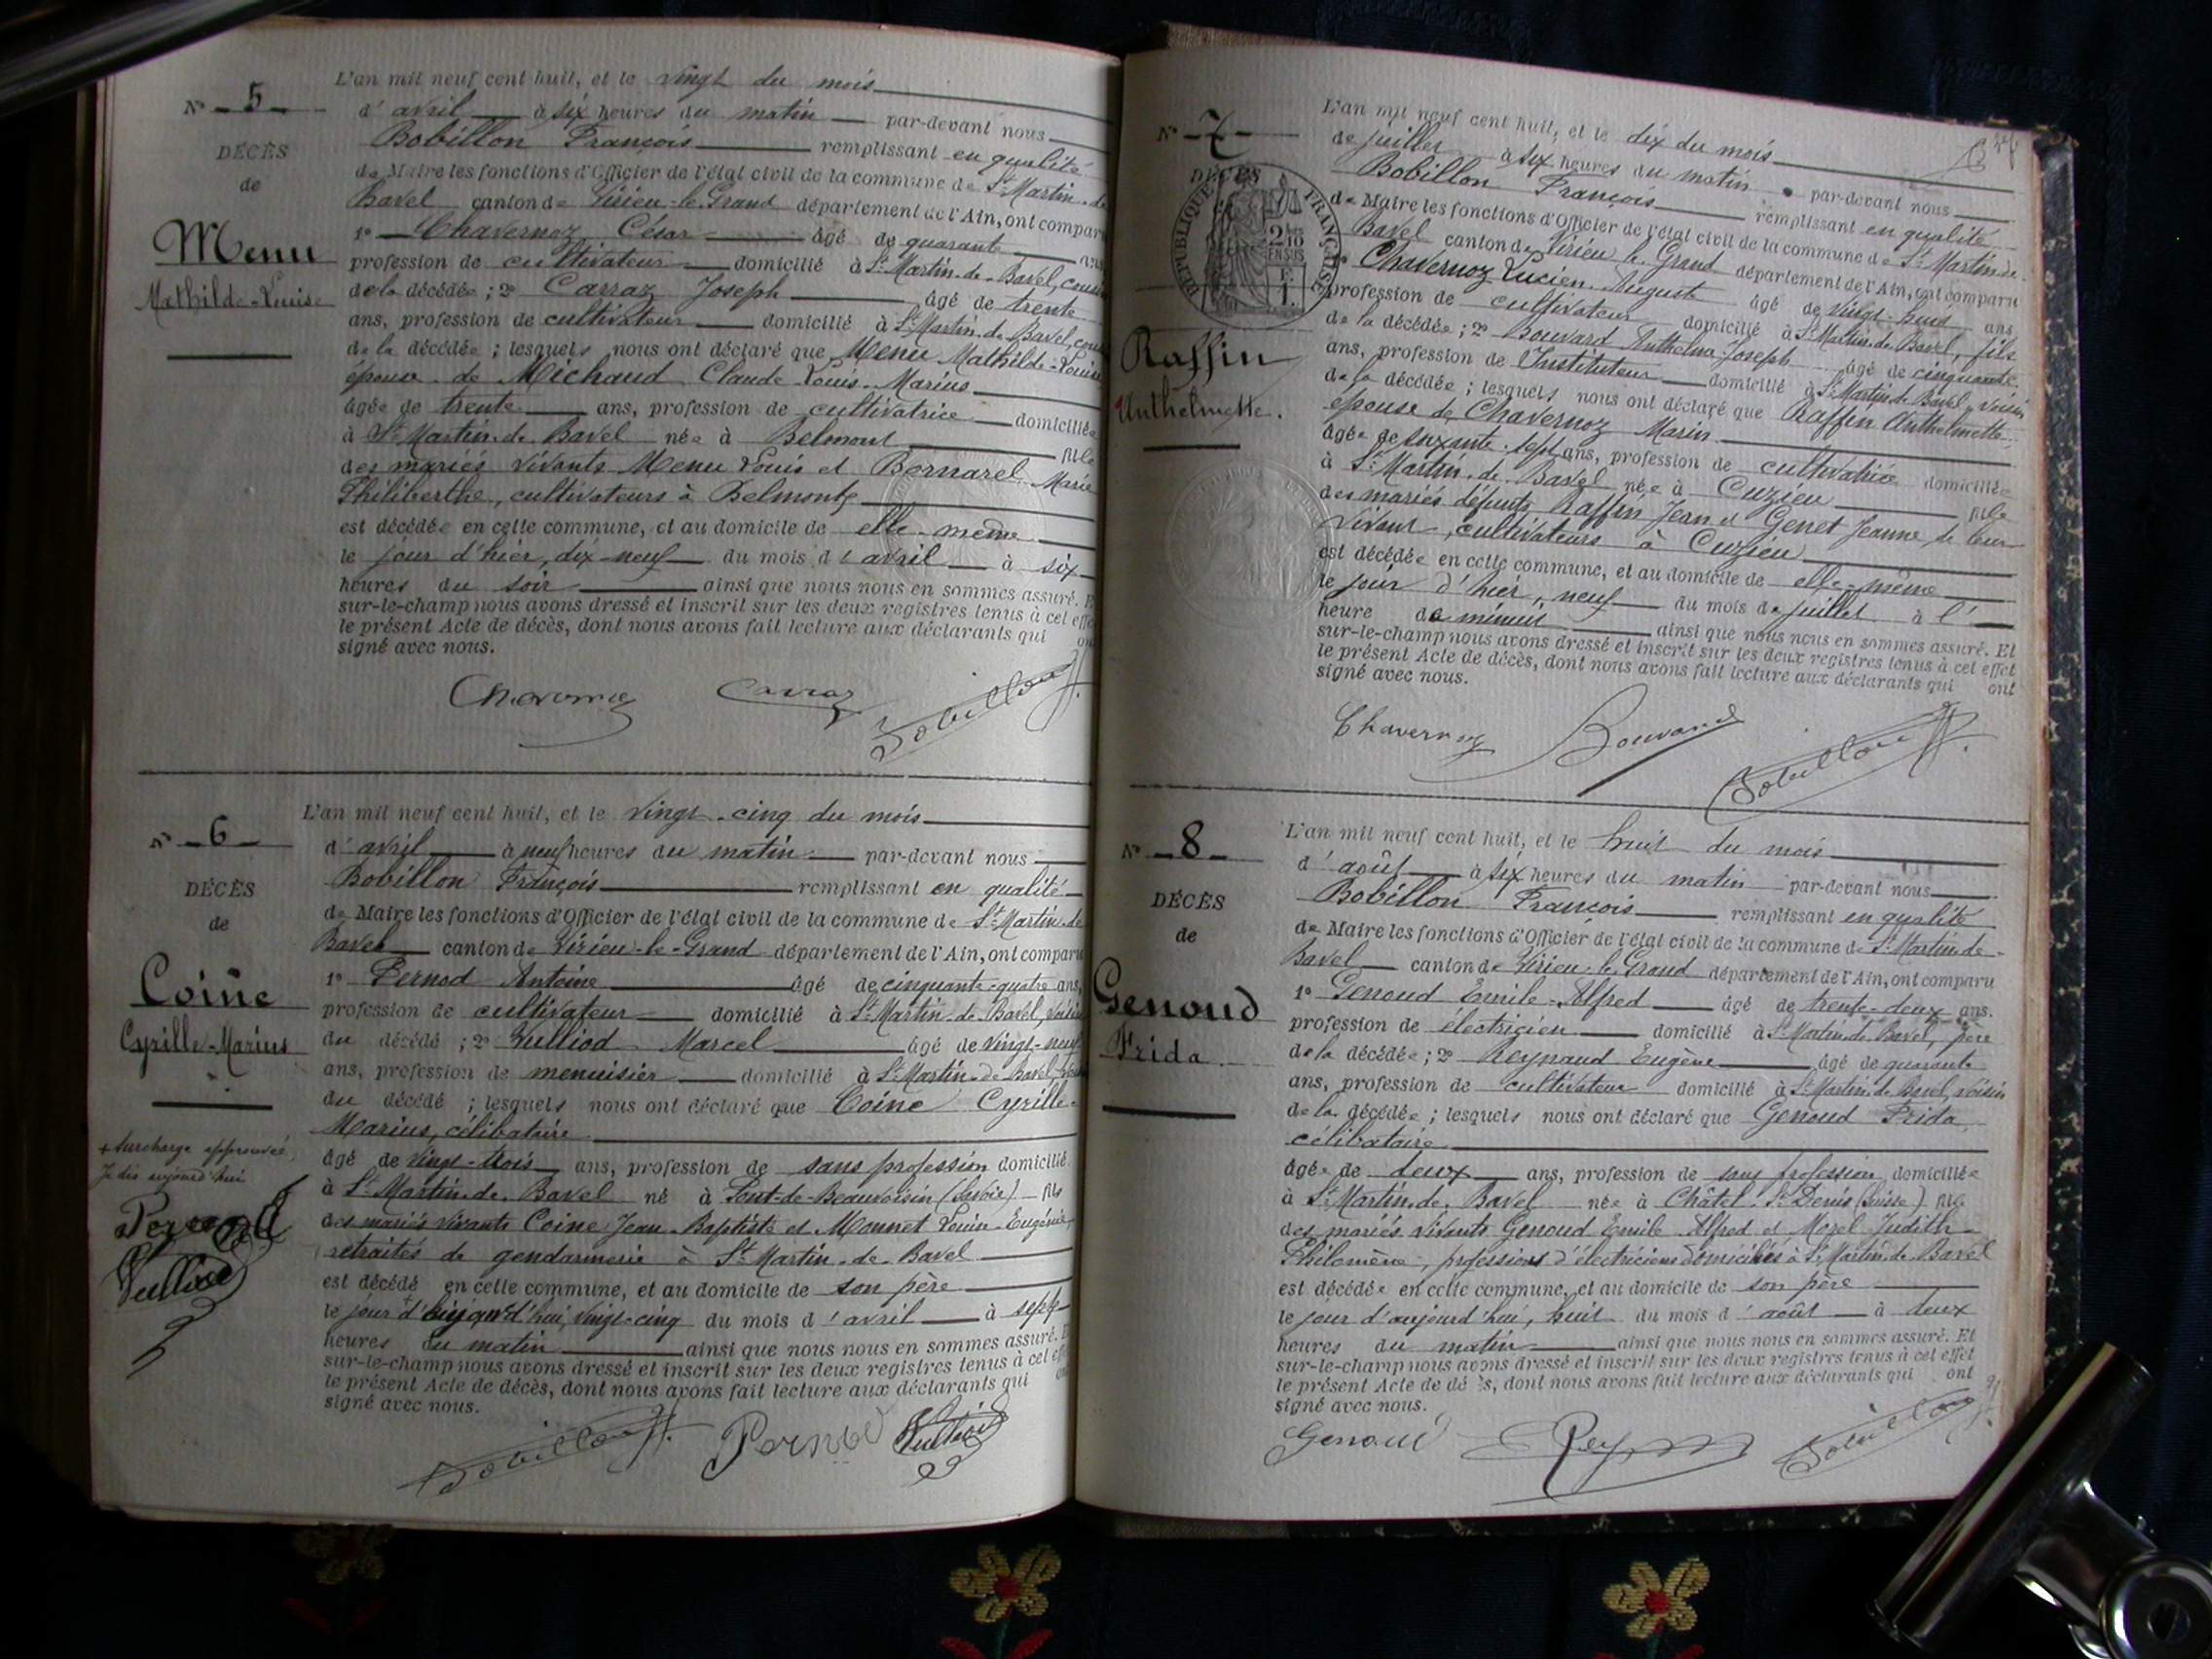 N° 5
DÉCÈS
de
Menu
Mathilde-Louise
L'an mil neuf cent huit, et le vingt du mois
d'avril à six heures du matin par-devant nous
Bobillon François remplissant en qualité
de Maire les fonctions d'Officier de l'état civil de la commune de St Martin-de
Bavel canton de Virieu-le-Grand département de l'Ain, ont comparu
1° Chavernoz César âgé de quarante ans
profession de cultivateur domicilié à St Martin-de-Bavel,
de la décédée ; 2° Carraz Joseph âgé de trente
ans, profession de cultivateur domicilié à St Martin-de-Bavel,
de la décédée ; lesquels nous ont déclaré que Menu Mathilde-Louise
épouse de Michaud Claude-Louis-Marius
âgée de trente ans, profession de cultivatrice domiciliée
à St Martin-de-Bavel née à Belmont fille
des mariés vivants Menu Louis et Bornarel Marie
Philiberthe, cultivateurs à Belmont
est décédée en cette commune, et au domicile de elle-même
le jour d'hier, dix-neuf du mois d'avril à six
heures du soir ainsi que nous nous en sommes assuré. Et
sur-le-champ nous avons dressé et inscrit sur les deux registres tenus à cet effet
le présent Acte de décès, dont nous avons fait lecture aux déclarants qui ont
signé avec nous.
Chavernoz Carraz Bobillon F.
N° 6
DÉCÈS
de
Coine
Cyrille-Marius
+ surcharge approuvée,
Je dis aujourd'hui
Pernod
Vulliod
L'an mil neuf cent huit, et le vingt-cinq du mois
d'avril à neuf heures du matin par-devant nous
Bobillon François remplissant en qualité
de Maire les fonctions d'Officier de l'état civil de la commune de St Martin-de
Bavel canton de Virieu-le-Grand département de l'Ain, ont comparu
1° Pernod Antoine âgé de cinquante-quatre ans,
profession de cultivateur domicilié à St Martin-de-Bavel, voisin
du décédé ; 2° Vulliod Marcel âgé de vingt-neuf
ans, profession de menuisier domicilié à St Martin-de-Bavel, voisin
du décédé ; lesquels nous ont déclaré que Coine Cyrille-
Marius, célibataire
âgé de vingt-trois ans, profession de sans profession domicilié
à St Martin-de-Bavel né à Pont-de-Beauvoisin (Savoie) fils
des mariés vivants Coine Jean-Baptiste et Monnet Louise-Eugénie,
retraités de gendarmerie à St Martin-de-Bavel
est décédé en cette commune, et au domicile de son père
le jour d'aujourd'hui, vingt-cinq du mois d'avril à sept
heures du matin ainsi que nous nous en sommes assuré. Et
sur-le-champ nous avons dressé et inscrit sur les deux registres tenus à cet effet
le présent Acte de décès, dont nous avons fait lecture aux déclarants qui ont
signé avec nous.
Bobillon F. Pernod Vulliod
N° 7
DÉCÈS
RÉPUBLIQUE FRANÇAISE
2/10 EN SUS
Raffin
Anthelmette.
L'an mil neuf cent huit, et le dix du mois
de juillet à six heures du matin par-devant nous
Bobillon François remplissant en qualité
de Maire les fonctions d'Officier de l'état civil de la commune de St Martin-de-
Bavel canton de Virieu-le-Grand département de l'Ain, ont comparu
1° Chavernoz Lucien-Auguste âgé de vingt-huit ans,
profession de cultivateur domicilié à St Martin-de-Bavel, fils
de la décédée ; 2° Bouvard Anthelme-Joseph âgé de cinquante
ans, profession de l'Instituteur domicilié à St Martin-de-Bavel, voisin
de la décédée ; lesquels nous ont déclaré que Raffin Anthelmette
épouse de Chavernoz Marin
âgée de soixante-sept ans, profession de cultivatrice domiciliée
à St Martin-de-Bavel née à Cuzieu fille
des mariés défunts Raffin Jean et Genet Jeanne de leur
vivant, cultivateurs à Cuzieu
est décédée en cette commune, et au domicile de elle-même
le jour d'hier, neuf du mois de juillet à l'
heure de minuit ainsi que nous nous en sommes assuré. Et
sur-le-champ nous avons dressé et inscrit sur les deux registres tenus à cet effet
le présent Acte de décès, dont nous avons fait lecture aux déclarants qui ont
signé avec nous.
Chavernoz Bouvard Bobillon F.
N° 8
DÉCÈS
de
Genoud
Frida
L'an mil neuf cent huit, et le huit du mois
d'août à six heures du matin par-devant nous
Bobillon François remplissant en qualité
de Maire les fonctions d'Officier de l'état civil de la commune de St Martin-de-
Bavel canton de Virieu-le-Grand département de l'Ain, ont comparu
1° Genoud Emile-Alfred âgé de trente-deux ans.
profession de électricien domicilié à St Martin-de-Bavel, père
de la décédée ; 2° Reynaud Eugène âgé de quarante
ans, profession de cultivateur domicilié à St Martin-de-Bavel, voisin
de la décédée ; lesquels nous ont déclaré que Genoud Frida,
célibataire
âgée de deux ans, profession de sans profession domiciliée
à St Martin-de-Bavel née à Châtel-St Denis (Suisse) fille
des mariés vivants Genoud Emile-Alfred et Morel Judith-
Philomène, profession d'électriciens domiciliés à St Martin-de-Bavel
est décédée en cette commune, et au domicile de son père
le jour d'aujourd'hui, huit du mois d'août à deux
heures du matin ainsi que nous nous en sommes assuré. Et
sur-le-champ nous avons dressé et inscrit sur les deux registres tenus à cet effet
le présent Acte de décès, dont nous avons fait lecture aux déclarants qui ont
signé avec nous.
Genoud Bobillon F.